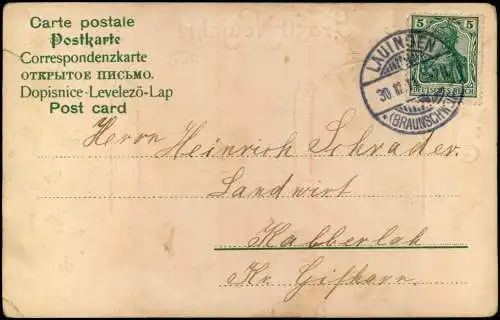 Carte postale
Postkarte
Correspondenzkarte
ОТКРЫТОЕ ПИСЬМО.
Dopisnice-Levelező-Lap
Post card
5 5
DEUTSCHES REICH
LAUINGEN
30.12.
*(BRAUNSCHW.)
Herrn Heinrich Schrader.
Landwirt
Kabberlah
Kr. Gifhorn.